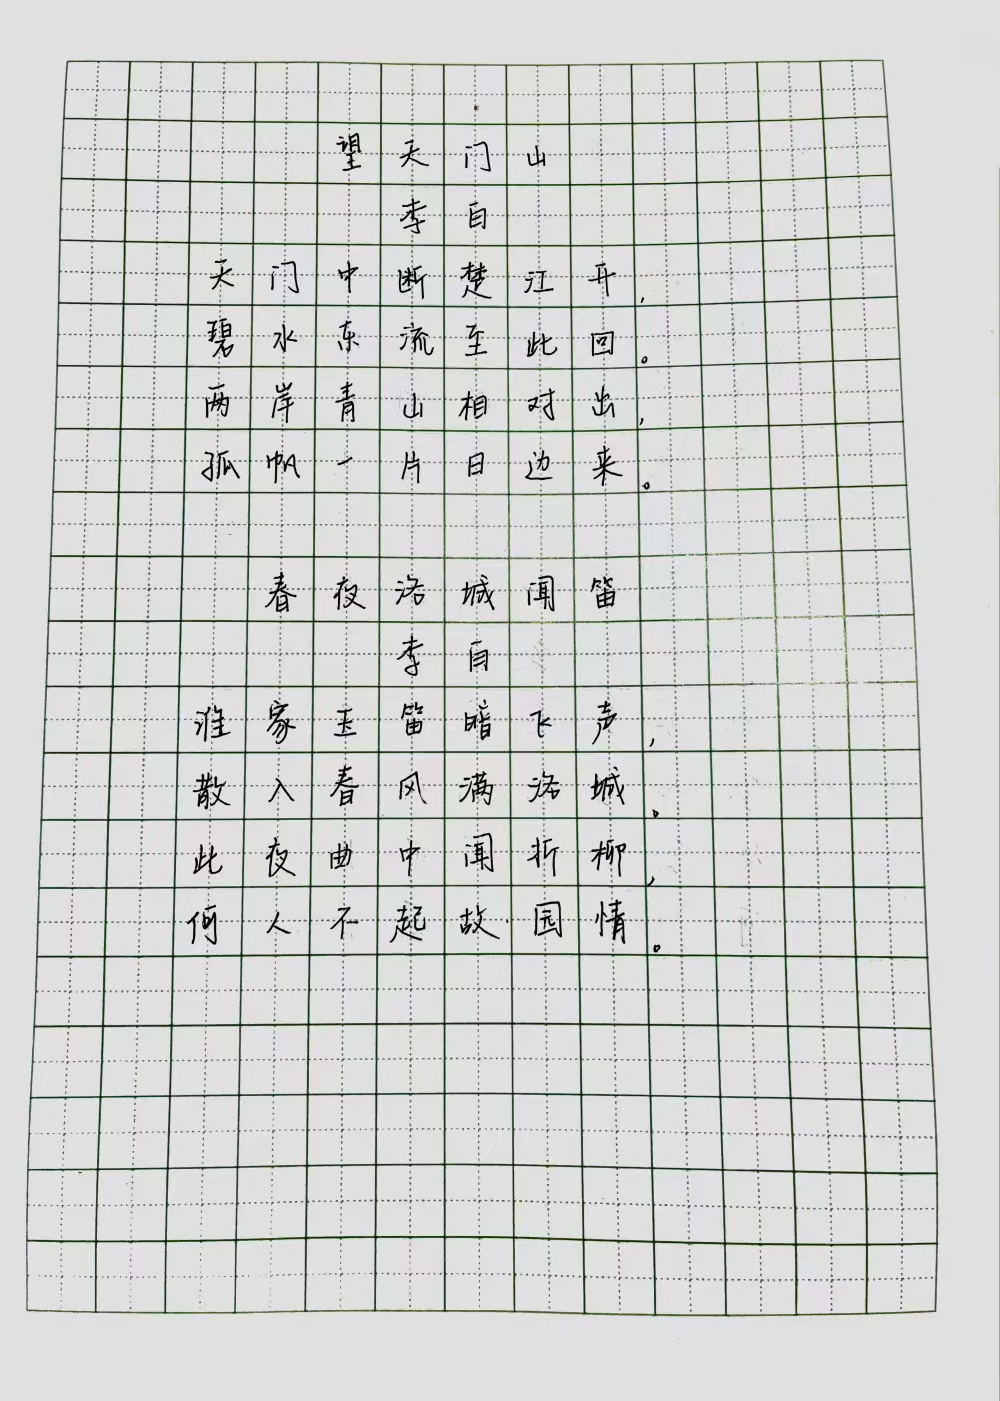 望天门山
李白
天门中断楚江开,
碧水东流至此回。
两岸青山相对出,
孤帆一片日边来。
春夜洛城闻笛
李白
谁家玉笛暗飞声,
散入春风满洛城。
此夜曲中闻折柳,
何人不起故园情。